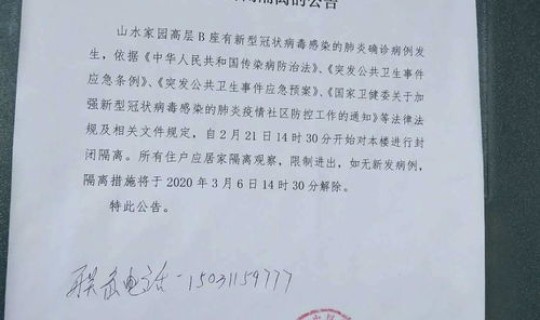 离的公告
山水家园高层B座有新型冠状病毒感染的肺炎确诊病例发
生，依据《中华人民共和国传染病防治法》、《突发公共卫生事件
应急条例》、《突发公共卫生事件应急预案》、《国家卫健委关于加
强新型冠状病毒感染的肺炎疫情社区防控工作的通知》等法律法
规及相关文件规定，自2月21日14时30分开始对本楼进行封
闭隔离。所有住户应居家隔离观察，限制进出，如无新发病例，
隔离措施将于2020年3月6日14时30分解除。
特此公告。
联系电话-15031159777